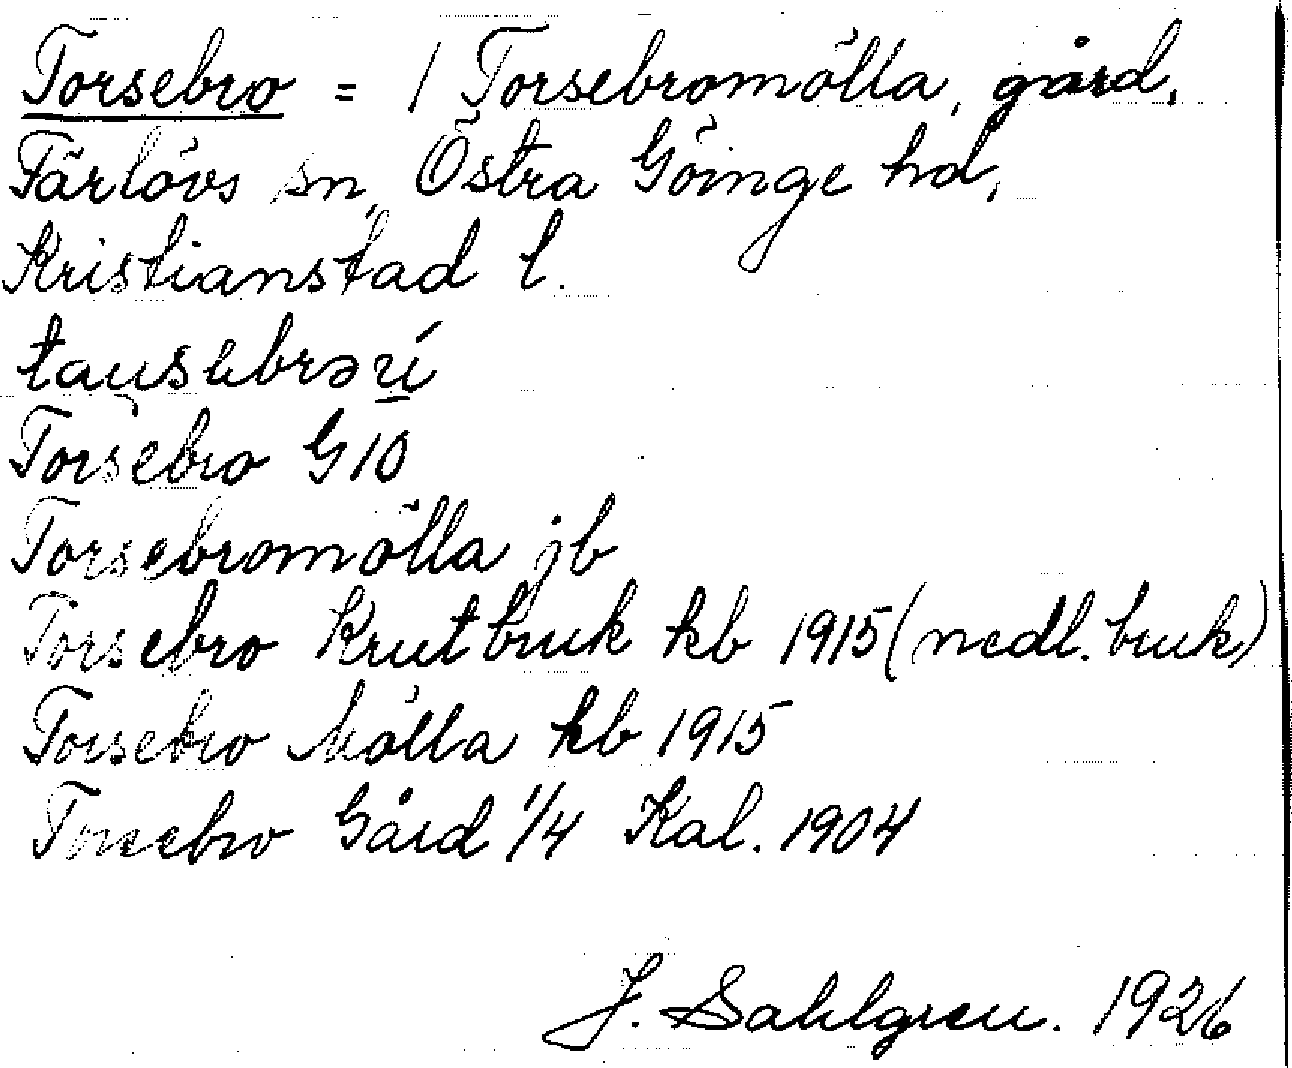 Torsebro = 1 Torsebromölla, gård,
Färlövs sn, Östra Göinge hd,
Kristianstad l.
Torsebro G10
Torsebromölla jb
Torsebro Krutbruk kb 1915 (nedl. bruk)
Torsebro Mölla kb 1915
Torsebro Gård 1/4 Kal. 1904
J. Sahlgren. 1926